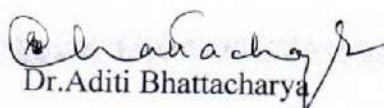 Dr.Aditi Bhattacharya